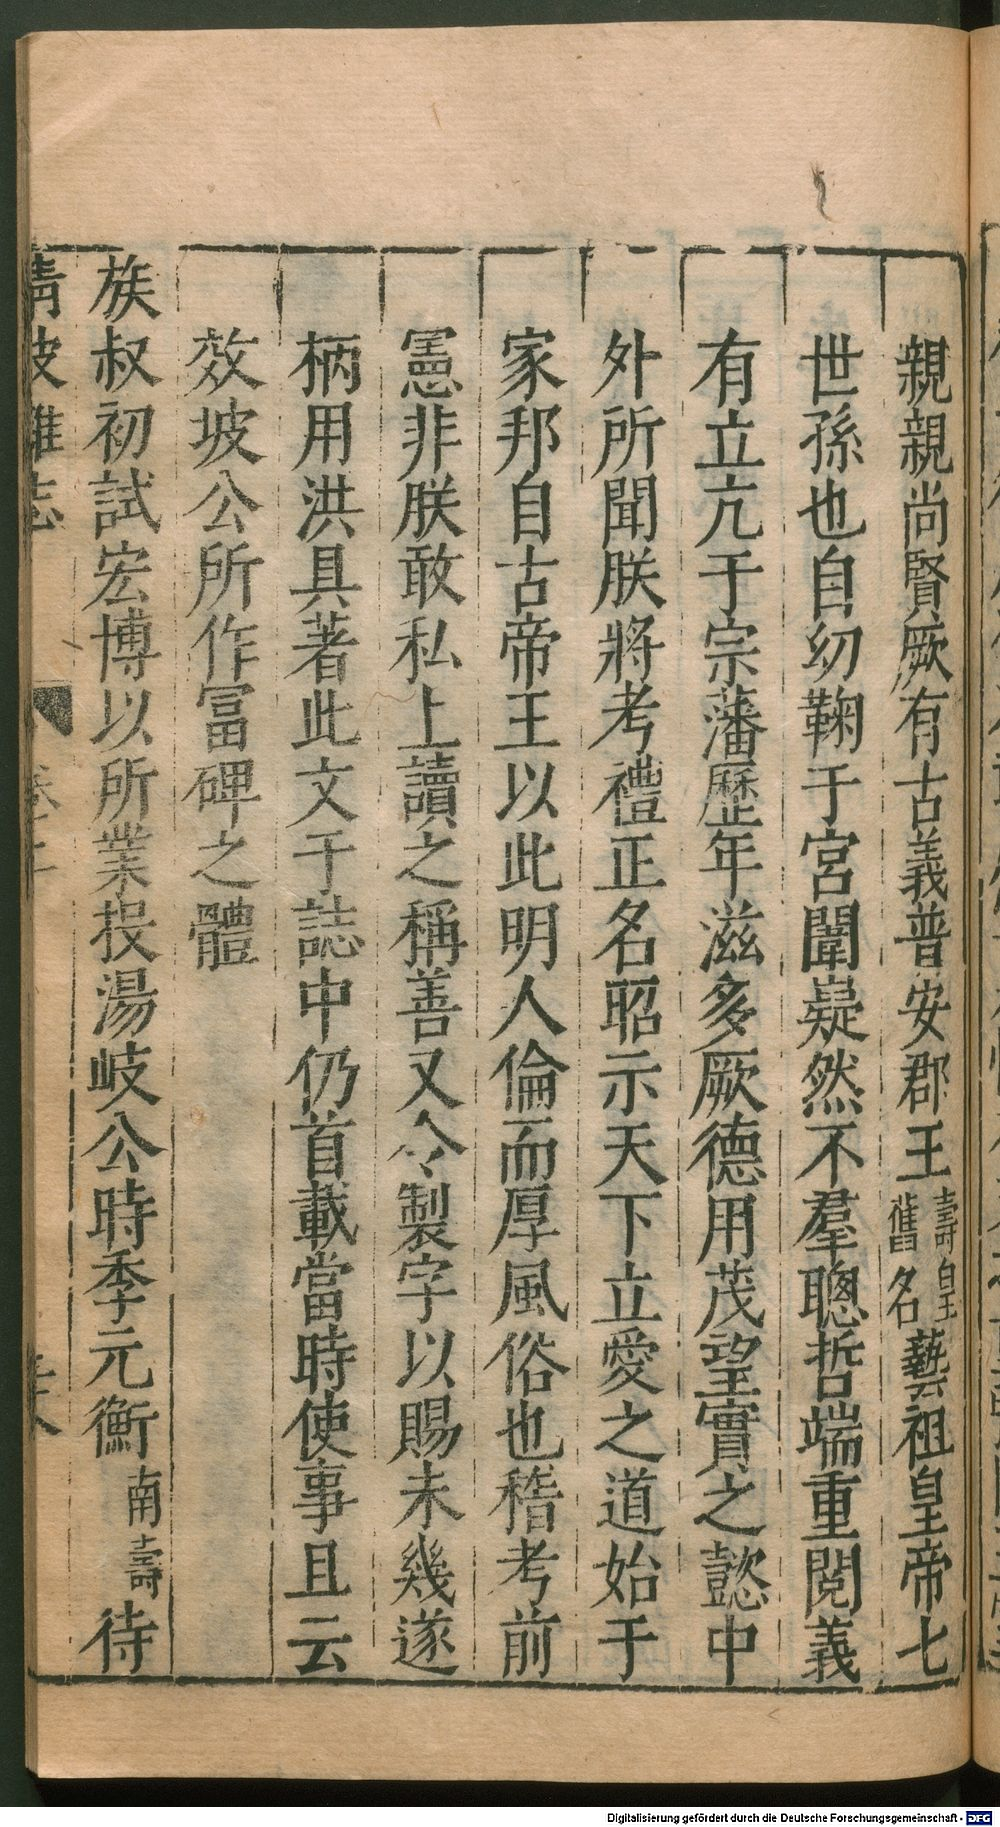 親親尚賢厥有古義普安郡王壽皇舊名藝祖皇帝七
世孫也自幼鞠于宮闈嶷然不羣聰哲端重閱義
有立亢于宗藩歷年滋多厥德用茂望實之懿中
外所聞朕將考禮正名昭示天下立愛之道始于
家邦自古帝王以此明人倫而厚風俗也稽考前
憲非朕敢私上讀之稱善又令製字以賜未幾遂
柄用洪具著此文于誌中仍首載當時使事且云
效坡公所作冨碑之體
族叔初試宏博以所業投湯岐公時季元衡南壽待
清波雜志
Digitalisierung gefördert durch die Deutsche Forschungsgemeinschaft - DFG